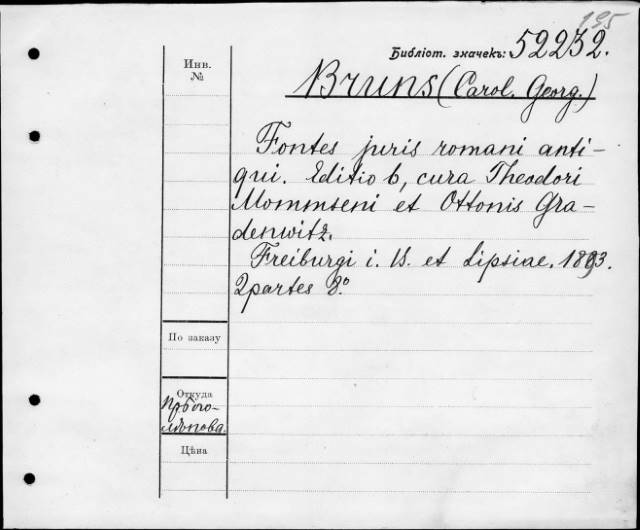 195
Библіот. значекъ: 52232.
Инв.
№
Bruns (Carol. Georg.)
Fontes juris romani anti-
qui. Editio 6, cura Theodori
Mommseni et Ottonis Gra-
denwitz.
Freiburgi i. B. et Lipsiae. 1893.
2 partes 8º.
По заказу
Откуда
Цѣна